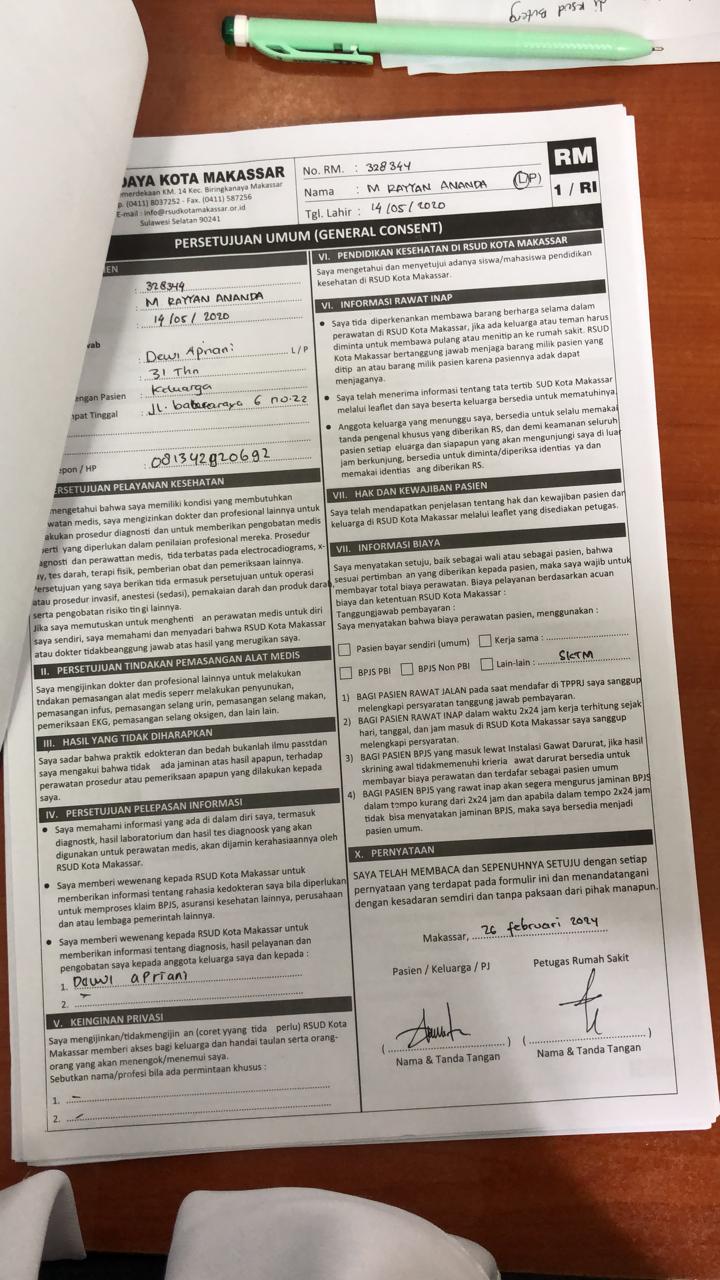 DAYA KOTA MAKASSAR
merdekaan KM. 14 Kec. Biringkanaya Makassar
p. (0411) 8037252 - Fax. (0411) 587256
E-mail : info@rsudkotamakassar.or.id
Sulawesi Selatan 90241
No. RM. : 328344
Nama : M RAYYAN ANANDA (L/P)
Tgl. Lahir : 14/05/2020
RM
1 / RI
PERSETUJUAN UMUM (GENERAL CONSENT)
IEN
: 328344
: M RAYYAN ANANDA
: 14/05/2020
wab
: Dewi Apriani L/P
: 31 Thn
engan Pasien : Keluarga
pat Tinggal : Jl. batararaya 6 no.22
epon / HP : 081342920692
ERSETUJUAN PELAYANAN KESEHATAN
mengetahui bahwa saya memiliki kondisi yang membutuhkan
watan medis, saya mengizinkan dokter dan profesional lainnya untuk
akukan prosedur diagnosti dan untuk memberikan pengobatan medis
erti yang diperlukan dalam penilaian profesional mereka. Prosedur
agnosti dan perawattan medis, tida terbatas pada electrocadiograms, x-
ay, tes darah, terapi fisik, pemberian obat dan pemeriksaan lainnya.
Persetujuan yang saya berikan tida ermasuk persetujuan untuk operasi
atau prosedur invasif, anestesi (sedasi), pemakaian darah dan produk darah,
serta pengobatan risiko tin gi lainnya.
Jika saya memutuskan untuk menghenti an perawatan medis untuk diri
saya sendiri, saya memahami dan menyadari bahwa RSUD Kota Makassar
atau dokter tidakbeanggung jawab atas hasil yang merugikan saya.
II. PERSETUJUAN TINDAKAN PEMASANGAN ALAT MEDIS
Saya mengijinkan dokter dan profesional lainnya untuk melakukan
tndakan pemasangan alat medis seperr melakukan penyunukan,
pemasangan infus, pemasangan selang urin, pemasangan selang makan,
pemeriksaan EKG, pemasangan selang oksigen, dan lain lain.
III. HASIL YANG TIDAK DIHARAPKAN
Saya sadar bahwa praktik edokteran dan bedah bukanlah ilmu passtdan
saya mengakui bahwa tidak ada jaminan atas hasil apapun, terhadap
perawatan prosedur atau pemeriksaan apapun yang dilakukan kepada
saya.
IV. PERSETUJUAN PELEPASAN INFORMASI
• Saya memahami informasi yang ada di dalam diri saya, termasuk
diagnostk, hasil laboratorium dan hasil tes diagnoosk yang akan
digunakan untuk perawatan medis, akan dijamin kerahasiaannya oleh
RSUD Kota Makassar.
• Saya memberi wewenang kepada RSUD Kota Makassar untuk
memberikan informasi tentang rahasia kedokteran saya bila diperlukan
untuk memproses klaim BPJS, asuransi kesehatan lainnya, perusahaan
dan atau lembaga pemerintah lainnya.
• Saya memberi wewenang kepada RSUD Kota Makassar untuk
memberikan informasi tentang diagnosis, hasil pelayanan dan
pengobatan saya kepada anggota keluarga saya dan kepada :
1. Dewi apriani
2. -
V. KEINGINAN PRIVASI
Saya mengijinkan/tidakmengijin an (coret yyang tida perlu) RSUD Kota
Makassar memberi akses bagi keluarga dan handai taulan serta orang-
orang yang akan menengok/menemui saya.
Sebutkan nama/profesi bila ada permintaan khusus :
1. -
2. -
VI. PENDIDIKAN KESEHATAN DI RSUD KOTA MAKASSAR
Saya mengetahui dan menyetujui adanya siswa/mahasiswa pendidikan
kesehatan di RSUD Kota Makassar.
VI. INFORMASI RAWAT INAP
• Saya tida diperkenankan membawa barang berharga selama dalam
perawatan di RSUD Kota Makassar, jika ada keluarga atau teman harus
diminta untuk membawa pulang atau menitip an ke rumah sakit. RSUD
Kota Makassar bertanggung jawab menjaga barang milik pasien yang
ditip an atau barang milik pasien karena pasiennya adak dapat
menjaganya.
• Saya telah menerima informasi tentang tata tertib SUD Kota Makassar
melalui leaflet dan saya beserta keluarga bersedia untuk mematuhinya.
• Anggota keluarga yang menunggu saya, bersedia untuk selalu memakai
tanda pengenal khusus yang diberikan RS, dan demi keamanan seluruh
pasien setiap eluarga dan siapapun yang akan mengunjungi saya di luar
jam berkunjung, bersedia untuk diminta/diperiksa identias ya dan
memakai identias ang diberikan RS.
VII. HAK DAN KEWAJIBAN PASIEN
Saya telah mendapatkan penjelasan tentang hak dan kewajiban pasien dan
keluarga di RSUD Kota Makassar melalui leaflet yang disediakan petugas.
VII. INFORMASI BIAYA
Saya menyatakan setuju, baik sebagai wali atau sebagai pasien, bahwa
sesuai pertimban an yang diberikan kepada pasien, maka saya wajib untuk
membayar total biaya perawatan. Biaya pelayanan berdasarkan acuan
biaya dan ketentuan RSUD Kota Makassar :
Tanggungjawab pembayaran :
Saya menyatakan bahwa biaya perawatan pasien, menggunakan :
Pasien bayar sendiri (umum) Kerja sama :
BPJS PBI BPJS Non PBI Lain-lain : SKTM
1) BAGI PASIEN RAWAT JALAN pada saat mendafar di TPPRJ saya sanggup
melengkapi persyaratan tanggung jawab pembayaran.
2) BAGI PASIEN RAWAT INAP dalam waktu 2x24 jam kerja terhitung sejak
hari, tanggal, dan jam masuk di RSUD Kota Makassar saya sanggup
melengkapi persyaratan.
3) BAGI PASIEN BPJS yang masuk lewat Instalasi Gawat Darurat, jika hasil
skrining awal tidakmemenuhi krieria awat darurat bersedia untuk
membayar biaya perawatan dan terdafar sebagai pasien umum
4) BAGI PASIEN BPJS yang rawat inap akan segera mengurus jaminan BPJS
dalam tempo kurang dari 2x24 jam dan apabila dalam tempo 2x24 jam
tidak bisa menyatakan jaminan BPJS, maka saya bersedia menjadi
pasien umum.
X. PERNYATAAN
SAYA TELAH MEMBACA dan SEPENUHNYA SETUJU dengan setiap
pernyataan yang terdapat pada formulir ini dan menandatangani
dengan kesadaran semdiri dan tanpa paksaan dari pihak manapun.
Makassar, 26 februari 2024
Pasien / Keluarga / PJ Petugas Rumah Sakit
Nama & Tanda Tangan Nama & Tanda Tangan